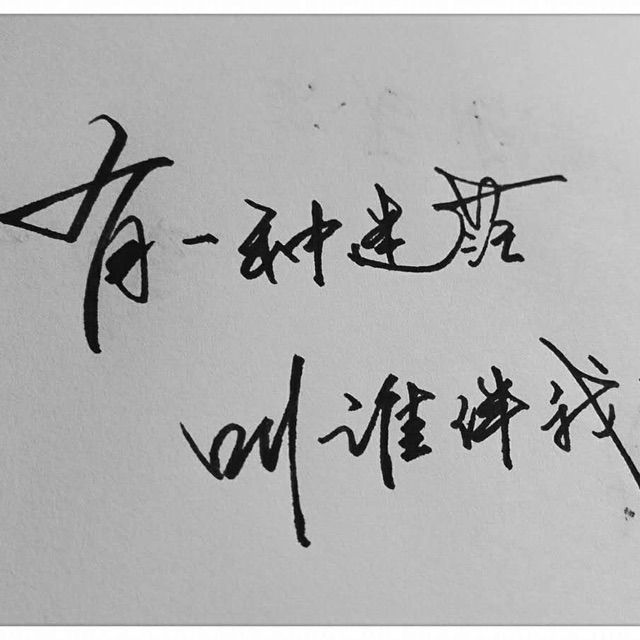 有一种迷茫
叫谁伴我